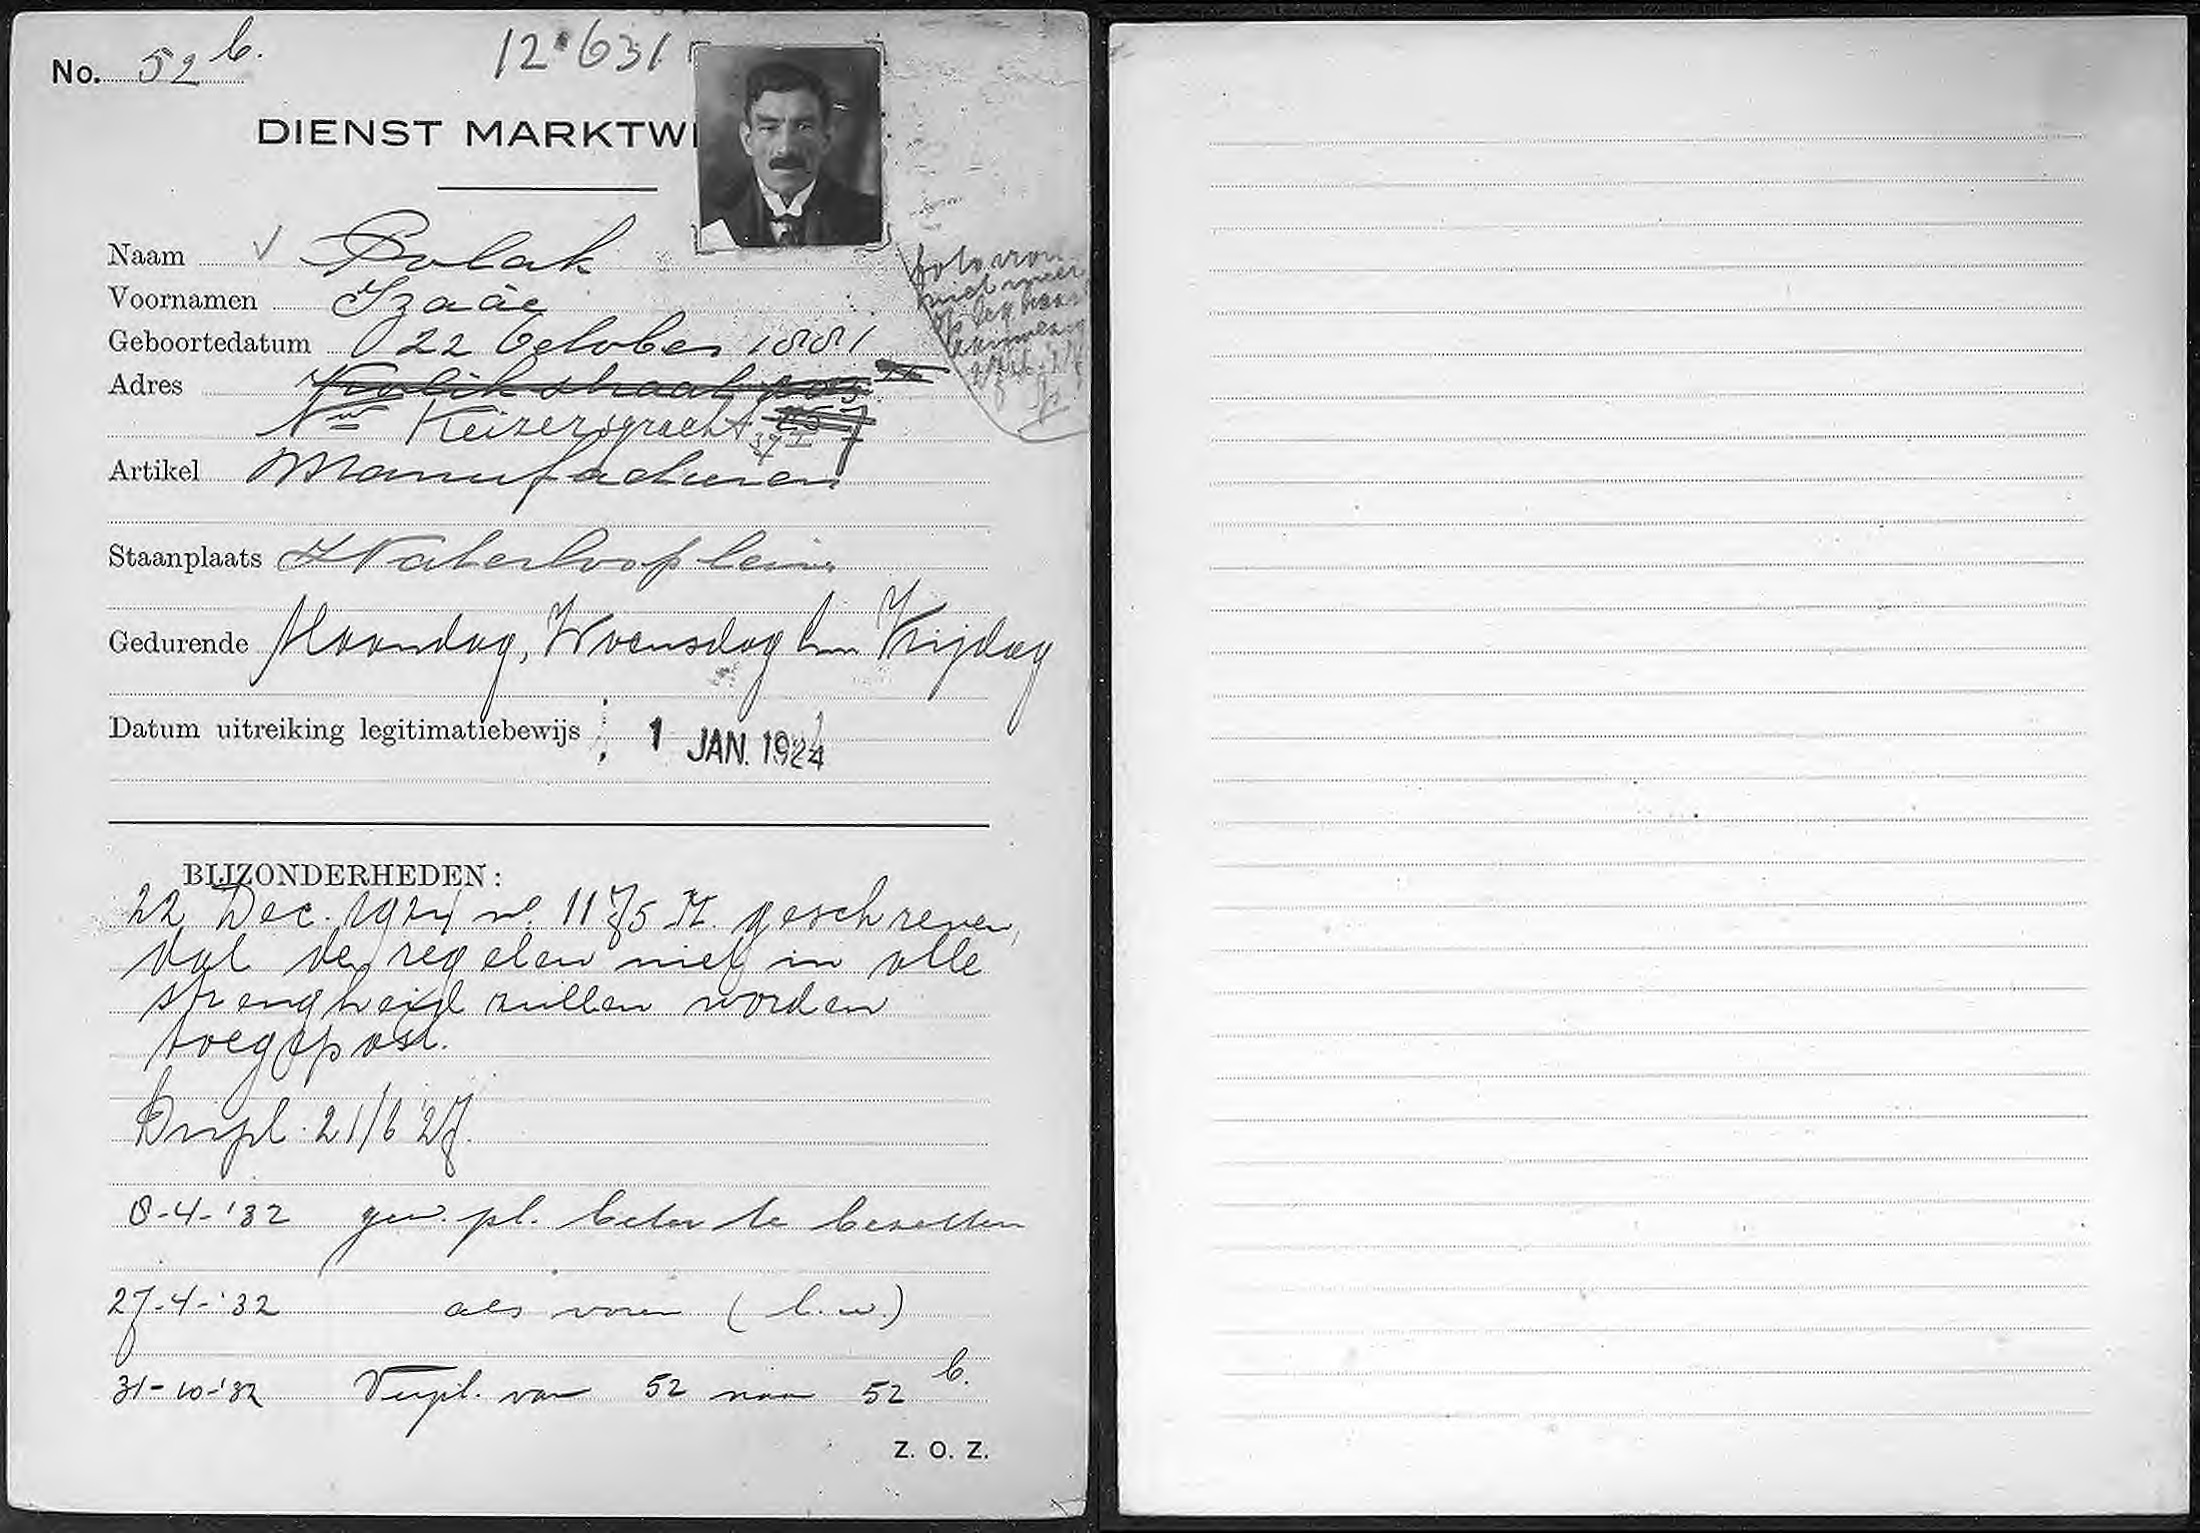 No. 52 b.
12.631
DIENST MARKTW
Naam Polak
Voornamen Izaäc
Geboortedatum 22 October 1881
Adres
Nwe Keizersgracht 37 I
Artikel Manufacturen
Staanplaats Waterlooplein
Gedurende Maandag, Woensdag en Vrijdag
Datum uitreiking legitimatiebewijs : 1 JAN. 1924
BIJZONDERHEDEN:
22 Dec. 1924 no. 1175 M. geschreven,
dat de regelen niet in alle
strengheid zullen worden
toegepast.
21/6 '27.
8-4-'32 gew. pl. beter te bezetten
27-4-'32 als voren (l.w.)
31-10-'32 Verpl. van 52 naar 52 b.
Z. O. Z.